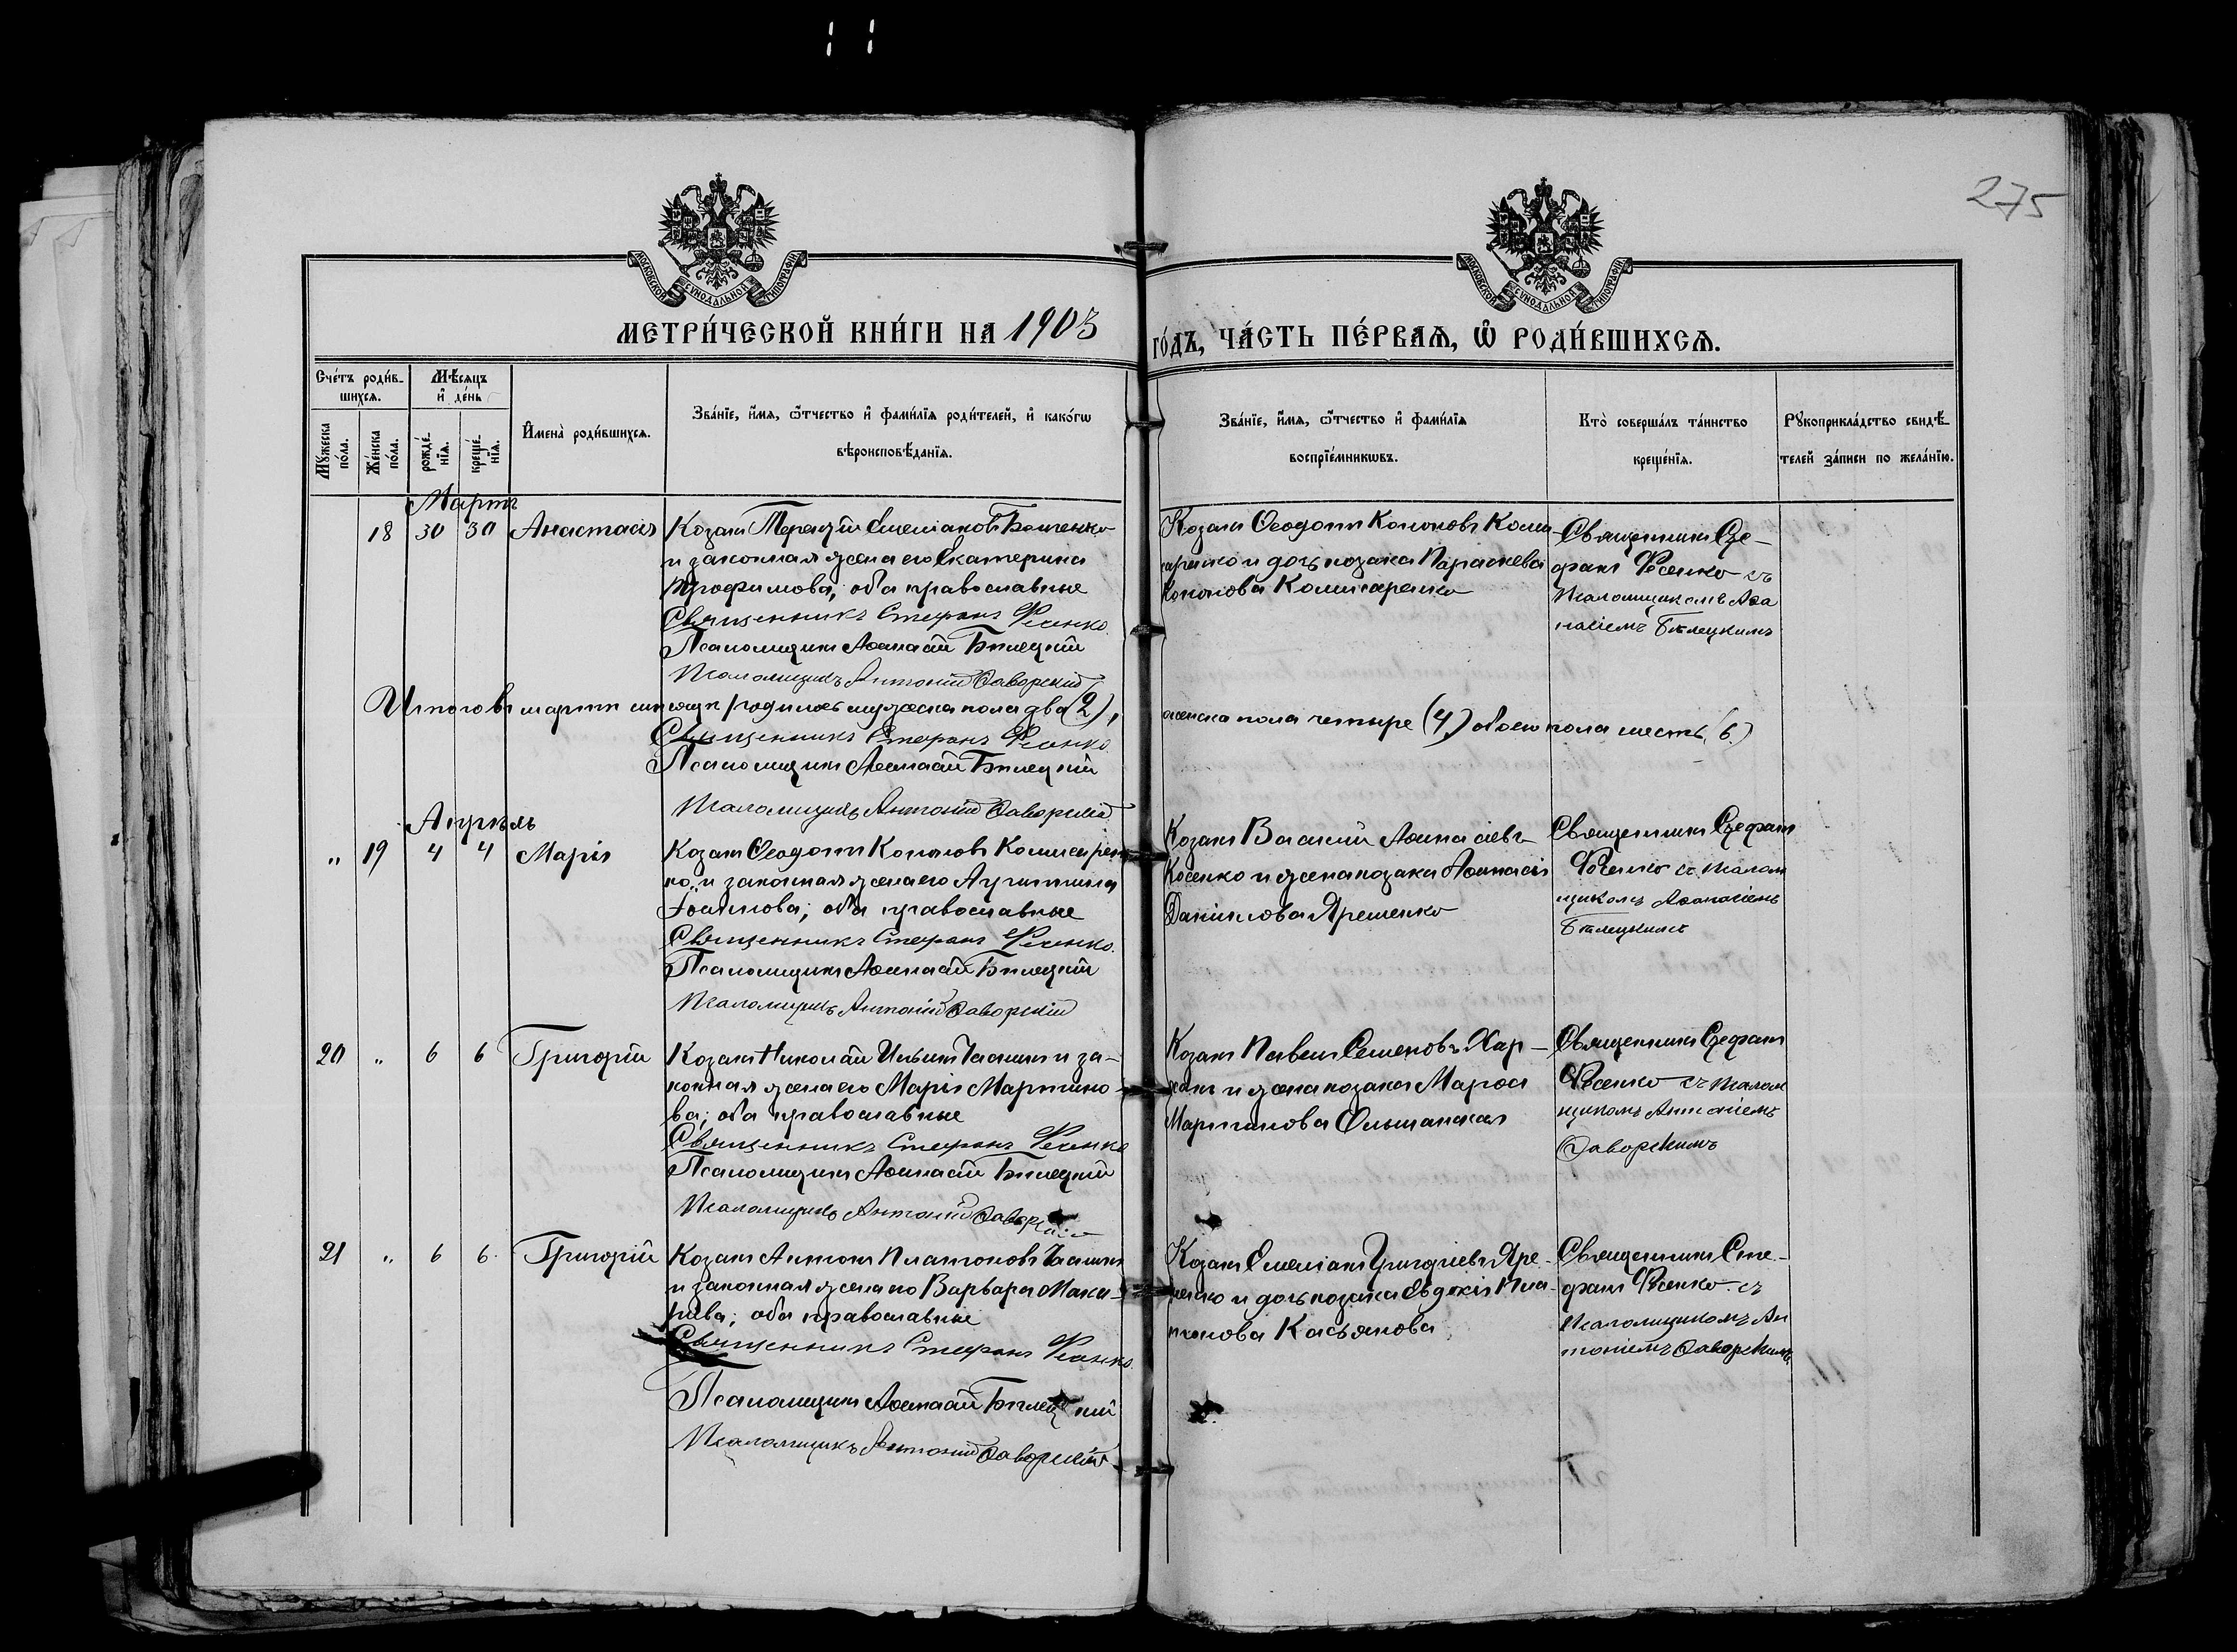 275
МОСКОВСКОЙ СѴНОДАЛЬНОЙ ТИПОГРАФІИ
МОСКОВСКОЙ СѴНОДАЛЬНОЙ ТИПОГРАФІИ
МЕТРИ́ЧЕСКОЙ КНИ́ГИ НА 1903
ГО́ДЪ, ЧА́СТЬ ПЕ́РВАѦ, Ѡ РОДИ́ВШИХСѦ.
Сче́тъ роди́в-
шихсѧ.
Мѣ́сѧцъ
и҆ де́нь
Мꙋ́жеска
по́ла.
Же́нска
по́ла.
рожде́-
нїѧ.
креще́-
нїѧ.
И҆мена̀ роди́вшихсѧ.
Зва́нїе, и҆́мѧ, ѻ҆́тчество и҆ фами́лїѧ роди́телей, и҆ како́гѡ
вѣроисповѣ́данїѧ.
Зва́нїе, и҆́мѧ, ѻ҆́тчество и҆ фами́лїѧ
воспрїе́мникѡвъ.
Кто̀ соверша́лъ та́инство
креще́нїѧ.
Рꙋкоприкла́дство свидѣ́-
телей за́писи по жела́нїю.
Мартъ
18 30 30 Анастасія
Козакъ Терентій Емеліановъ
и законная жена его Екатерина
Трофимова; оба православные
Священникъ Стефанъ Фесенко.
Псаломщикъ Аѳанасій Бѣлецкій
Псаломщикъ Антоній Яворскій
Козакъ Ѳеодотъ Кононовъ Коми
саренко и дочь козака Параскева
Кононова Комисаренко
Священникъ Сте-
фанъ Фесенко съ
Псаломщикомъ Аѳа
насіемъ Бѣлецкимъ
Итого въ мартѣ мѣсяцѣ родилось мужеска пола два (2),
женска пола четыре (4) обоего пола шесть (6.)
Священникъ Стефанъ Фесенко.
Псаломщикъ Аѳанасій Бѣлецкій
Псаломщикъ Антоній Яворскій
Апрѣль
" 19 4 4 Марія
Козакъ Ѳеодотъ Кононовъ Комисарен
ко и законная жена его
Іоаннова; оба православные
Священникъ Стефанъ Фесенко.
Псаломщикъ Аѳанасій Бѣлецкій
Псаломщикъ Антоній Яворскій
Козакъ Василій Аѳанасіевъ
Косенко и жена козака
Даніилова Яременко
Священникъ Стефанъ
Фесенко съ псалом
щикомъ Аѳанасіемъ
Бѣлецкимъ
20 " 6 6 Григорій
Козакъ Николай Ильинъ и за-
конная жена его Марія Мартино-
ва; оба православные
Священникъ Стефанъ Фесенко
Псаломщикъ Аѳанасій Бѣлецкій
Псаломщикъ Антоній Яворскій
Козакъ Павелъ Семеновъ
и жена козака
Мартинова Ольшанская
Священникъ Стефанъ
Фесенко съ псалом
щикомъ Антоніемъ
Яворскимъ
21 " 6 6 Григорій
Козакъ Антонъ Платоновъ
и законная жена его Варвара Мака-
рова; оба православные
Священникъ Стефанъ Фесенко.
Псаломщикъ Аѳанасій Бѣлецкій
Псаломщикъ Антоній Яворскій
Козакъ Емеліанъ Григоріевъ Яре-
менко и дочь козака Евдокія Пла-
тонова Касьянова
Священникъ Сте-
фанъ Фесенко съ
Псаломщикомъ Ан
тоніемъ Яворскимъ